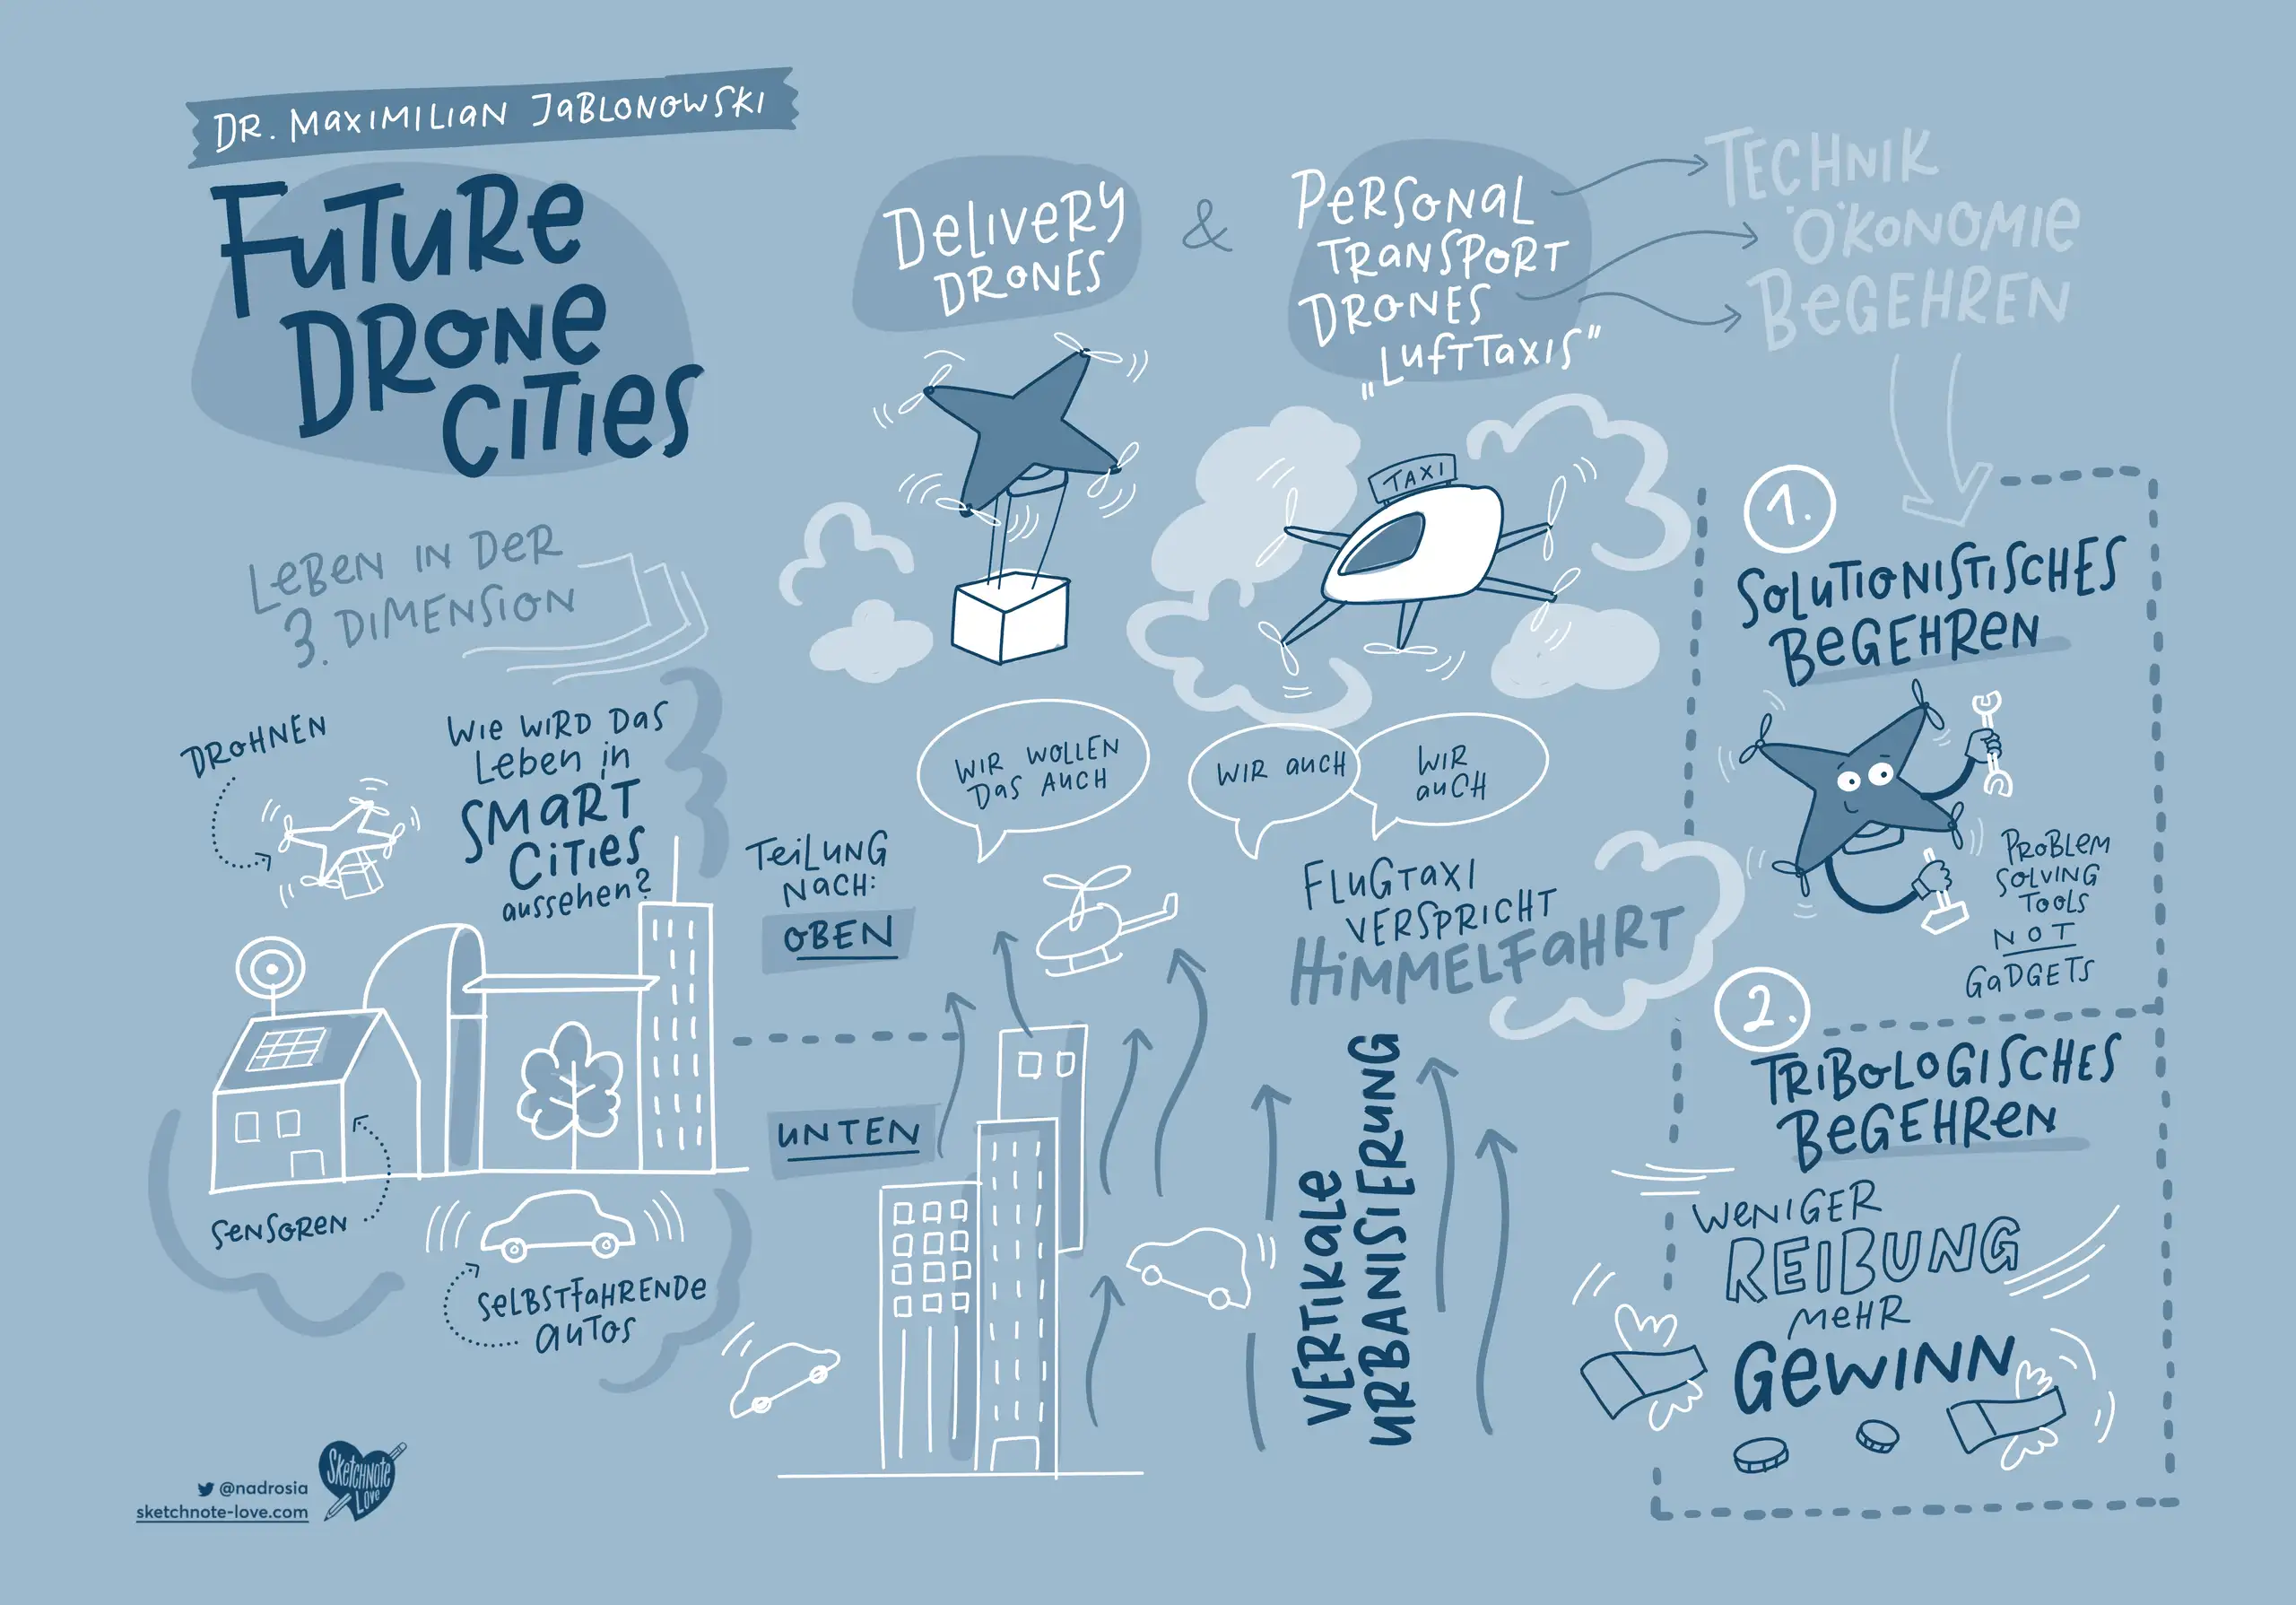 DR. MAXIMILIAN JABLONOWSKI
FUTURE
DRONE
CITIES
LEBEN IN DER
3. DIMENSION
DROHNEN
WIE WIRD DAS
LEBEN in
SMART
CITIES
aussehen?
SENSOREN
SELBSTFAHRENDE
AUTOS
@nadrosia
sketchnote-love.com
SKETCHNOTE
LOVE
DELIVERY
DRONES
&
PERSONAL
TRANSPORT
DRONES
„LUFTTAXIS"
TECHNIK
ÖKONOMIE
BEGEHREN
TAXI
WIR WOLLEN
DAS AUCH
WIR AUCH
WIR
AUCH
TEILUNG
NACH:
OBEN
UNTEN
FLUGTAXI
VERSPRICHT
HIMMELFAHRT
VERTIKALE
URBANISIERUNG
1.
SOLUTIONISTISCHES
BEGEHREN
PROBLEM
SOLVING
TOOLS
NOT
GADGETS
2.
TRIBOLOGISCHES
BEGEHREN
WENIGER
REIBUNG
MEHR
GEWINN